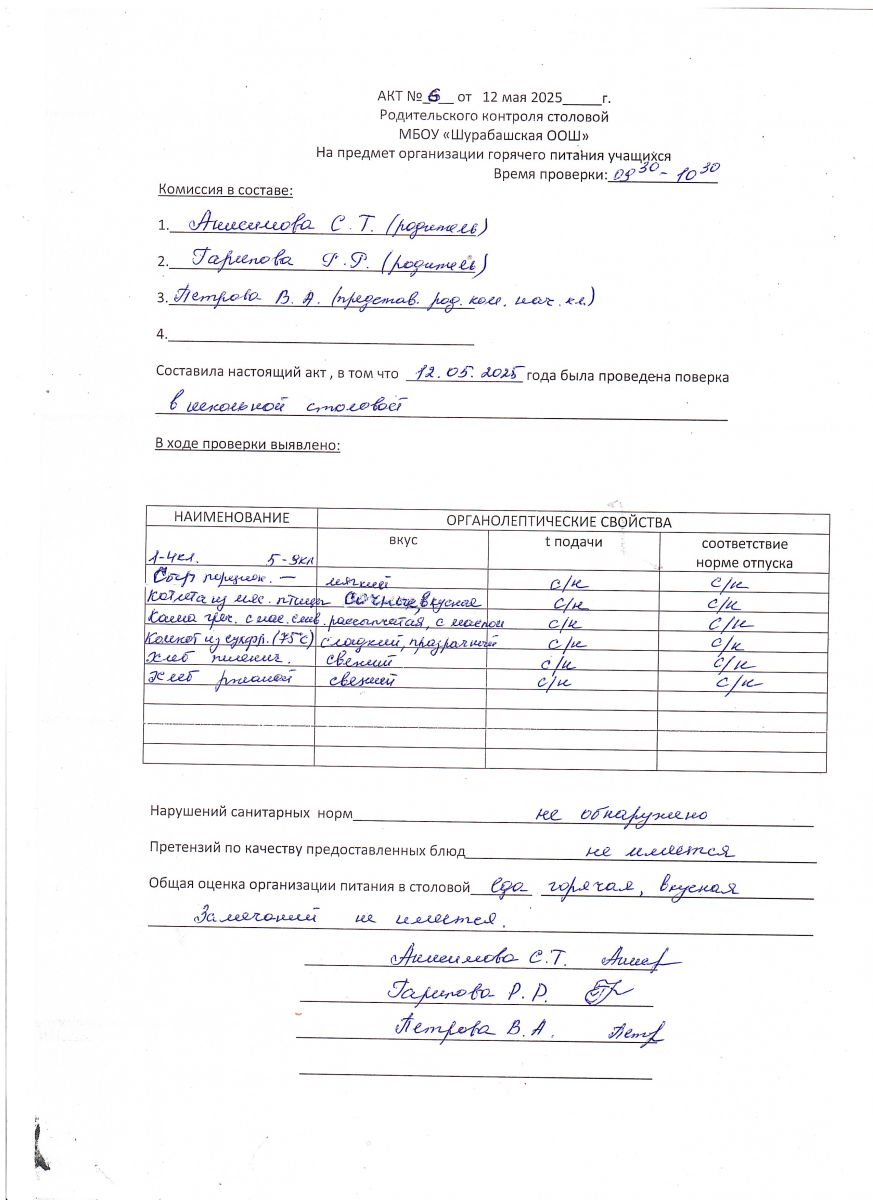 АКТ № 6 от 12 мая 2025_____г.
Родительского контроля столовой
МБОУ «Шурабашская ООШ»
На предмет организации горячего питания учащихся
Время проверки: 09 30 - 10 30
Комиссия в составе:
1. Анисимова С.Т. (родитель)
2. Гарипова Р.Р. (родитель)
3. Петрова В.А. (представ. род. ком. нач. кл.)
4.
Составила настоящий акт , в том что 12.05.2025 года была проведена поверка
в школьной столовой
В ходе проверки выявлено:
НАИМЕНОВАНИЕ ОРГАНОЛЕПТИЧЕСКИЕ СВОЙСТВА
вкус t подачи соответствие норме отпуска
1-4кл. 5-9кл
Сыр порцион. — мягкий с/н с/н
Котлета из мяс. птицы сочные, вкусная с/н с/н
Каша греч. с мас. слив. рассыпчатая, с маслом с/н с/н
Компот из сухфр. (75°С) сладкий, прозрачный с/н с/н
Хлеб пшенич. свежий с/н с/н
Хлеб ржаной свежий с/н с/н
Нарушений санитарных норм не обнаружено
Претензий по качеству предоставленных блюд не имеется
Общая оценка организации питания в столовой еда горячая, вкусная
Замечаний не имеется.
Анисимова С.Т.
Гарипова Р.Р.
Петрова В.А. Петр